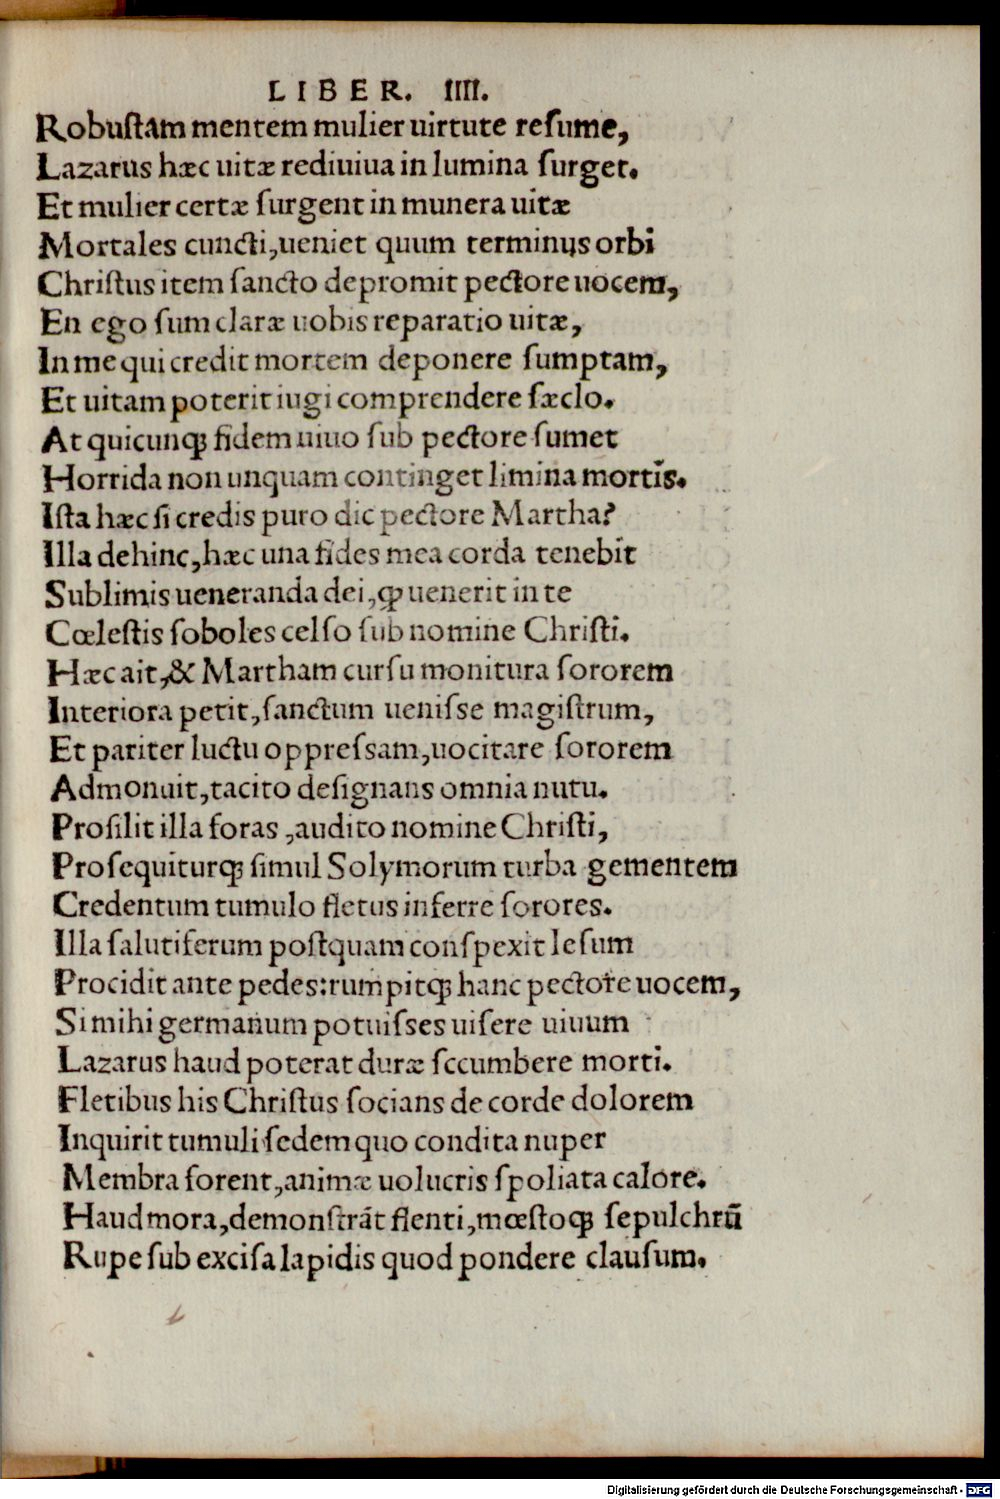 LIBER. IIII.
Robustam mentem mulier uirtute resume,
Lazarus hæc uitæ rediuiua in lumina surget.
Et mulier certæ surgent in munera uitæ
Mortales cuncti, ueniet quum terminus orbi
Christus item sancto depromit pectore uocem,
En ego sum claræ uobis reparatio uitæ,
In me qui credit mortem deponere sumptam,
Et uitam poterit iugi comprendere sæclo.
At quicunqꝫ fidem uiuo sub pectore sumet
Horrida non unquam continget limina mortis.
Ista hæc si credis puro dic pectore Martha?
Illa dehinc, hæc una fides mea corda tenebit
Sublimis ueneranda dei, ꝙ uenerit in te
Cœlestis soboles celso sub nomine Christi.
Hæc ait, & Martham cursu monitura sororem
Interiora petit, sanctum uenisse magistrum,
Et pariter luctu oppressam, uocitare sororem
Admonuit, tacito designans omnia nutu.
Prosilit illa foras, audito nomine Christi,
Prosequiturqꝫ simul Solymorum turba gementem
Credentum tumulo fletus inferre sorores.
Illa salutiferum postquam conspexit Iesum
Procidit ante pedes: rumpitqꝫ hanc pectore uocem,
Si mihi germanum potuisses uisere uiuum
Lazarus haud poterat duræ sccumbere morti.
Fletibus his Christus socians de corde dolorem
Inquirit tumuli sedem quo condita nuper
Membra forent, animæ uolucris spoliata calore.
Haud mora, demonstrāt flenti, mœstoqꝫ sepulchrū
Rupe sub excisa lapidis quod pondere clausum.
Digitalisierung gefördert durch die Deutsche Forschungsgemeinschaft - DFG